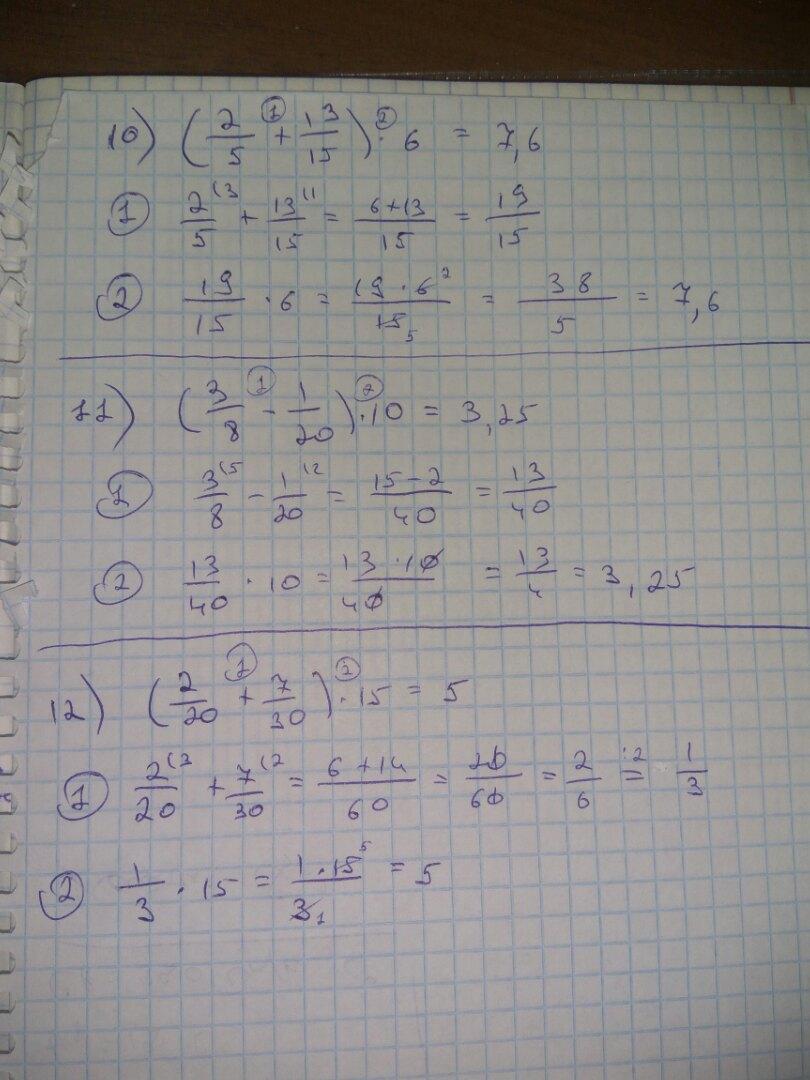 10) (2/5 + 13/15) · 6 = 7,6
① 2/5 (3 + 13/15 (1 = 6+13/15 = 19/15
② 19/15 · 6 = 19 · 6 2/15 5 = 38/5 = 7,6
11) (3/8 - 1/20) · 10 = 3,25
① 3/8 (5 - 1/20 (2 = 15-2/40 = 13/40
② 13/40 · 10 = 13 · 10/40 = 13/4 = 3,25
12) (2/20 + 7/30) · 15 = 5
① 2/20 (3 + 7/30 (2 = 6+14/60 = 20/60 = 2/6 :2 = 1/3
② 1/3 · 15 = 1 · 15 5/3 1 = 5